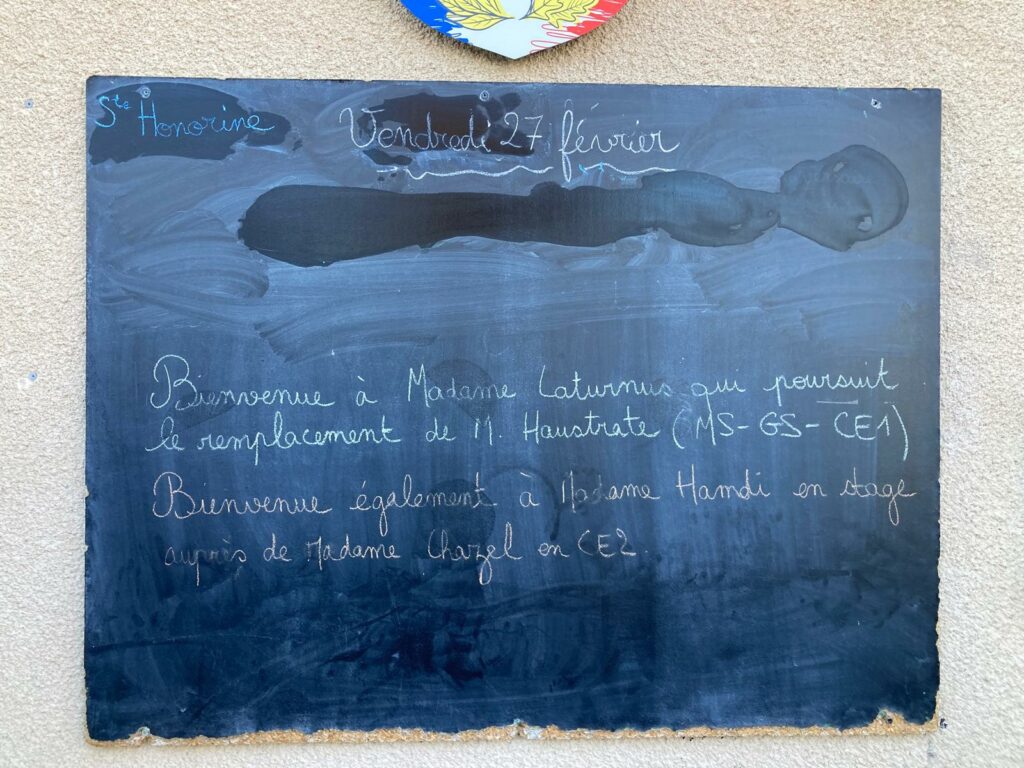 Ste Honorine
Vendredi 27 février
Bienvenue à Madame Laturnus qui poursuit
le remplacement de M. Haustrate (MS-GS-CE1)
Bienvenue également à Madame Hamdi en stage
auprès de Madame Chazel en CE2.